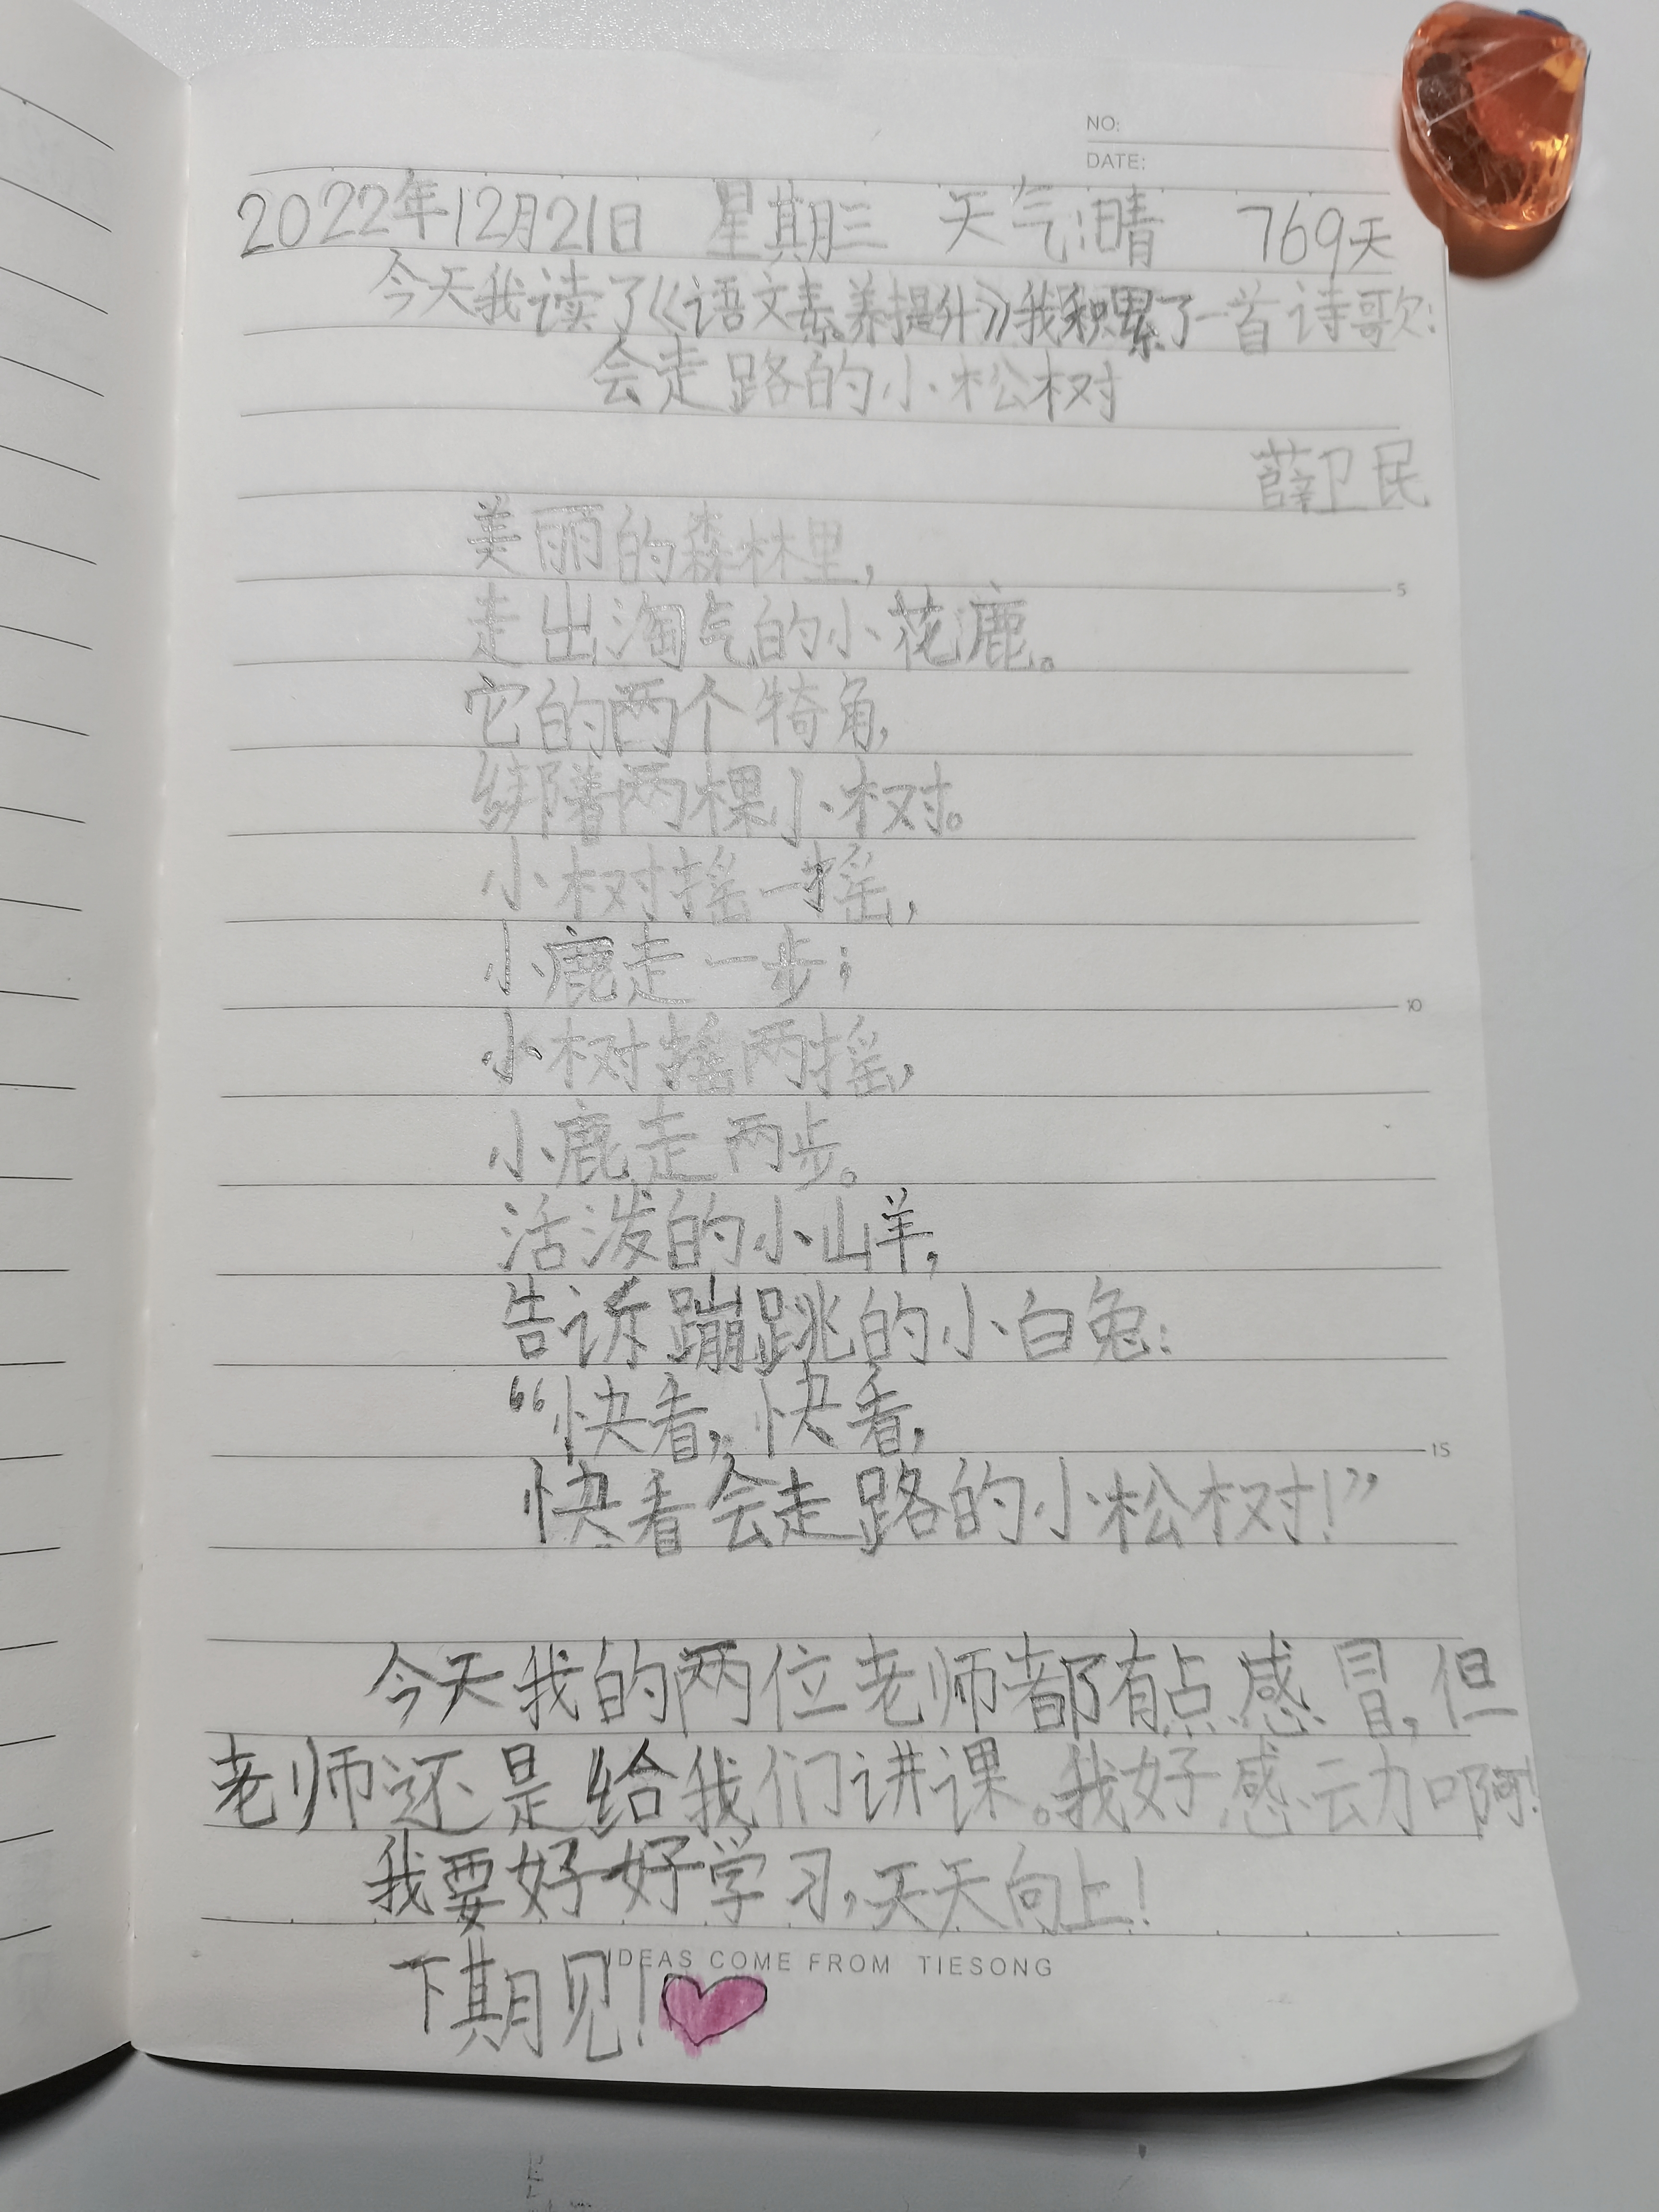 NO:
DATE:
2022年12月21日 星期三 天气:晴 769天
今天我读了《语文素养提升》我积累了一首诗歌:
会走路的小松树
薛卫民
美丽的森林里,
走出淘气的小花鹿。
5
它的两个犄角,
绑着两棵小树。
小树摇一摇,
小鹿走一步;
10
小树摇两摇,
小鹿走两步。
活泼的小山羊,
告诉蹦跳的小白兔:
“快看,快看,
15
快看会走路的小松树!”
今天我的两位老师都有点感冒,但
老师还是给我们讲课。我好感动啊!
我要好好学习,天天向上!
IDEAS COME FROM TIESONG
下期见!